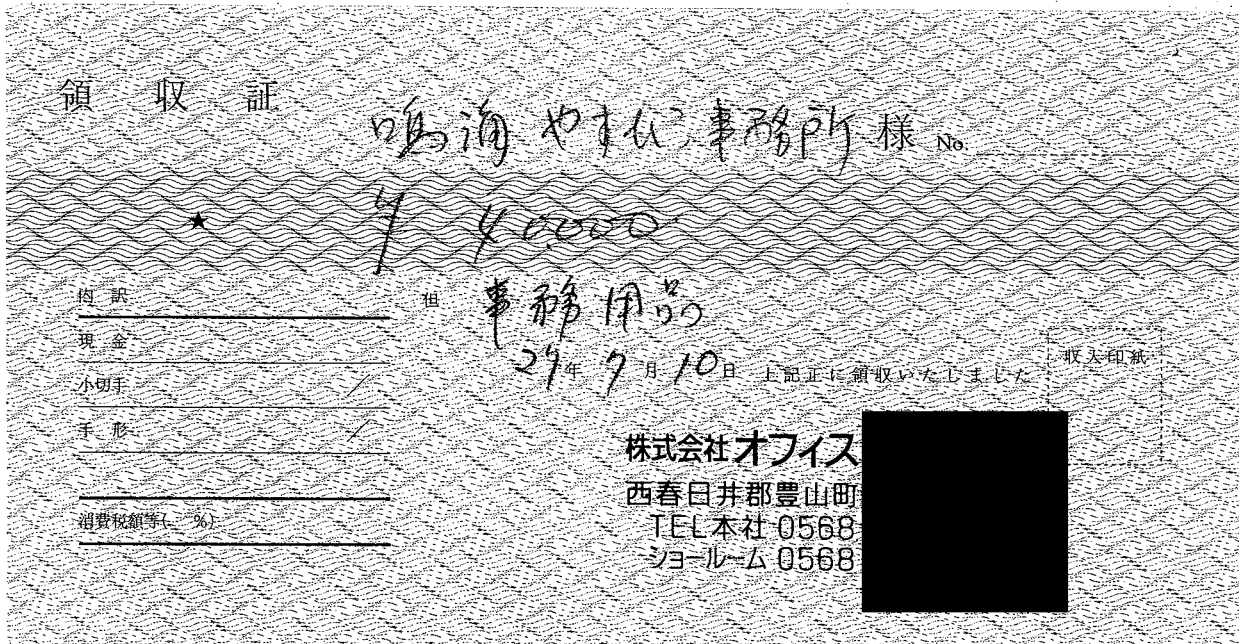 領収証
鳴海やすひろ事務所 様 No.
★ ¥40,000
内訳
但 事務用品
現金
29年7月10日 上記正に領収いたしました
収入印紙
小切手 /
手形 /
消費税額等( %)
株式会社オフィス
西春日井郡豊山町
TEL本社 0568
ショールーム 0568